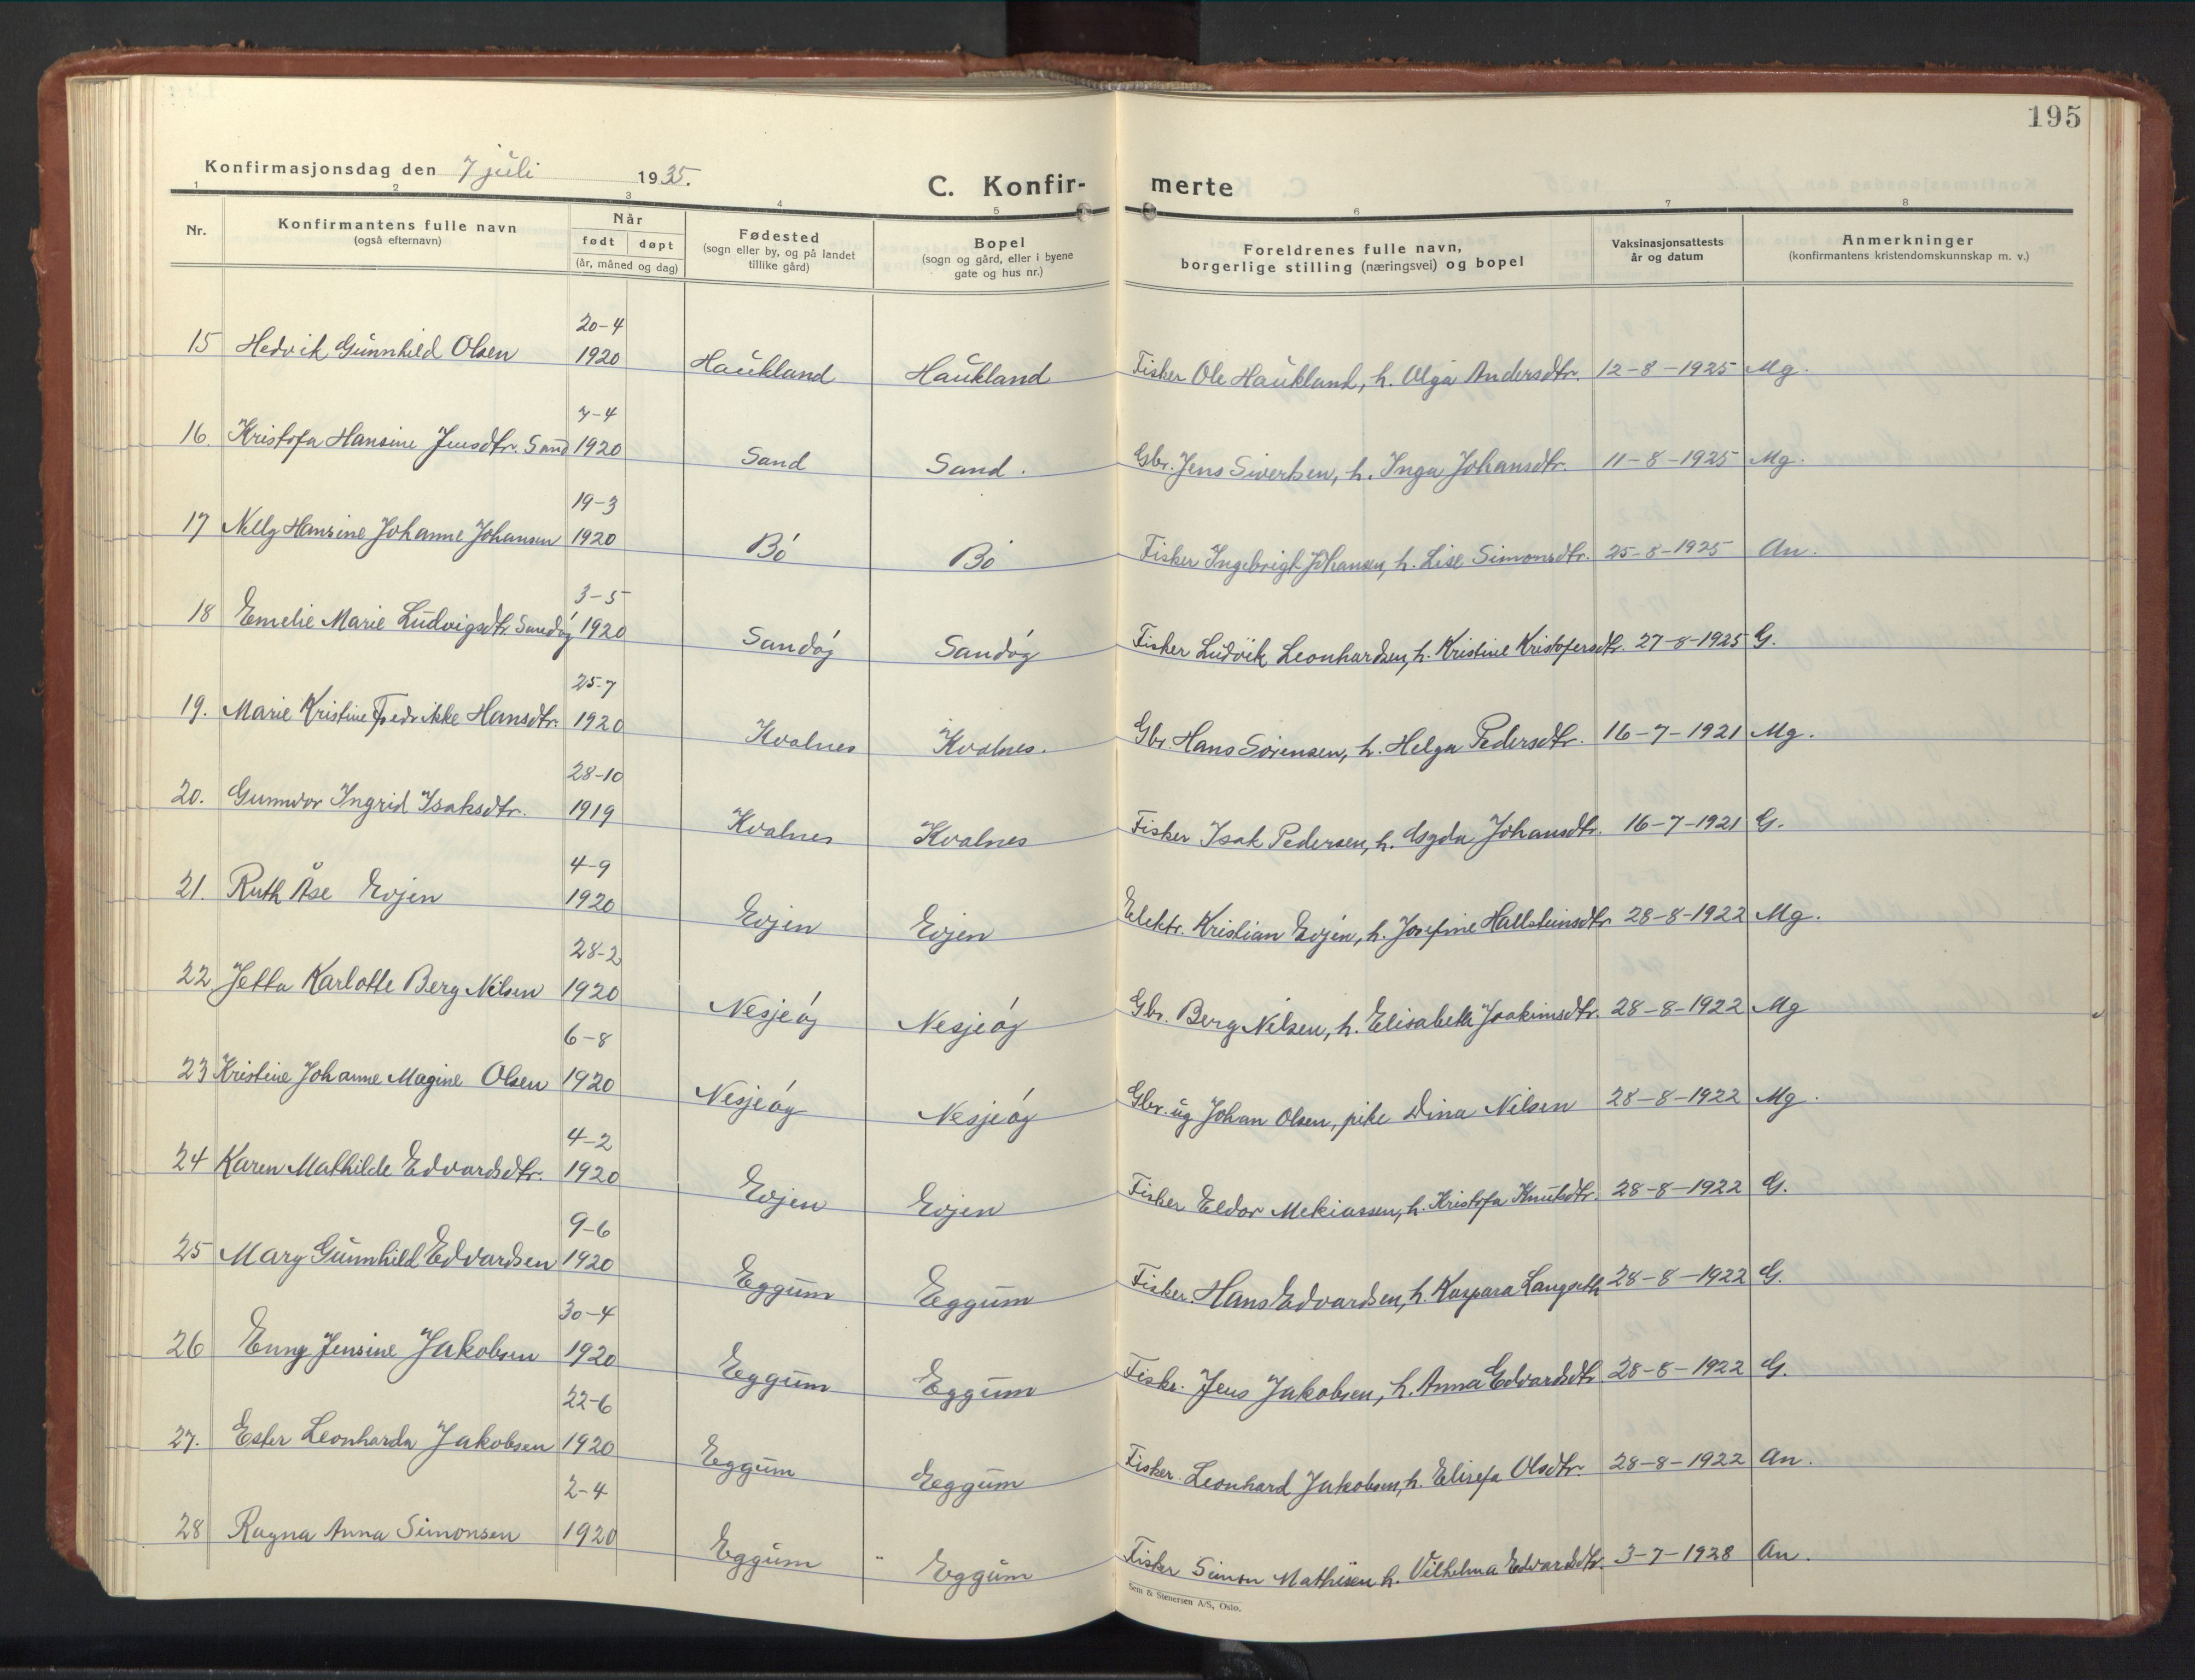 195
Konfirmasjonsdag den 7 juli 1935.
C. Konfir- merte
1 2 3 4 5 6 7 8
Nr. Konfirmantens fulle navn (også efternavn) Når født døpt (år, måned og dag) Fødested (sogn eller by, og på landet tillike gård) Bopel (sogn og gård, eller i byene gate og hus nr.) Foreldrenes fulle navn, borgerlige stilling (næringsvei) og bopel Vaksinasjonsattests år og datum Anmerkninger (konfirmantens kristendomskunnskap m. v.)
20-4
15 Hedvik Gunnhild Olsen 1920 Haukland Haukland Fisker Ole Haukland, h. Olga Andersdtr. 12-8-1925 Mg.
7-4
16. Kristofa Hansine Jensdtr. Sand 1920 Sand Sand. Gbr. Jens Sivertsen, h. Inga Johansdtr. 11-8-1925 Mg.
19-3
17 Nelly Hansine Johanne Johansen 1920 Bö Bö Fisker Ingebrigt Johansen, h. Lise Simonsdtr. 25-8-1925 An.
3-5
18 Emelie Marie Ludvigsdtr Sandöy 1920 Sandöy Sandöy Fisker Ludvik Leonhardsen, h. Kristine Kristofersdtr. 27-8-1925 G.
25-7
19. Marie Kristine Fredrikke Hansdtr. 1920 Kvalnes Kvalnes. Gbr. Hans Sörensen, h. Helga Pedersdtr. 16-7-1921 Mg.
28-10
20. Gunnvor Ingrid Isaksdtr. 1919 Kvalnes Kvalnes Fisker Isak Pedersen, h. Johansdtr. 16-7-1921 G.
4-9
21. Ruth Åse Evjen 1920 Evjen Evjen Elektr. Kristian Evjen, h. Josefine Hallsteinsdtr 28-8-1922 Mg.
28-2
22. Jetta Karlotte Berg Nilsen 1920 Nesjeöy Nesjeöy Gbr. Berg Nilsen, h. Elisabeth Joakimsdtr. 28-8-1922 Mg
6-8
23 Kristine Johanne Magine Olsen 1920 Nesjeöy Nesjeöy Gbr. ug Johan Olsen, pike Dina Nilsen 28-8-1922 Mg.
4-2
24 Karen Mathilde Edvardsdtr. 1920 Evjen Evjen Fisker Eldor Mekiassen, h. Kristofa Knutsdtr. 28-8-1922 G.
9-6
25 Mary Gunnhild Edvardsen 1920 Eggum Eggum Fisker. Hans Edvardsen, h. Kaspara 28-8-1922 G.
30-4
26 Enny Jensine Jakobsen 1920 Eggum Eggum Fisker. Jens Jakobsen, h. Anna Edvardsdtr 28-8-1922 G.
22-6
27. Ester Leonharda Jakobsen 1920 Eggum Eggum Fisker. Leonhard Jakobsen, h. Elisefa Olsdtr. 28-8-1922 An.
2-4
28 Ragna Anna Simonsen 1920 Eggum " Eggum Fisker Simon Mathisen h. Vilhelma Edvardsdtr. 3-7-1928 An.
Sem & Stenersen A/S, Oslo.